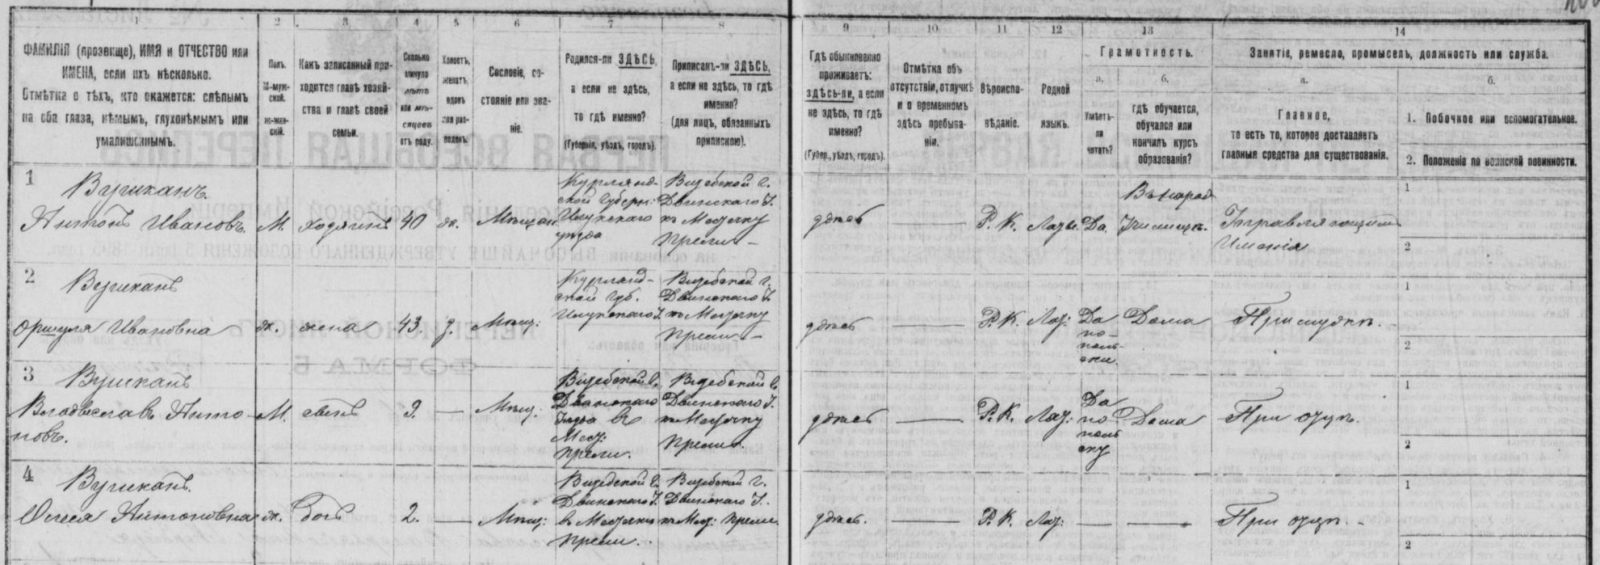 1
2
3
4
5
6
7
8
9
10
11
12
13
14
ФАМИЛІЯ (прозвище), ИМЯ и ОТЧЕСТВО или
ИМЕНА, если ихъ нѣсколько.
Отмѣтка о тѣхъ, кто окажется: слѣпымъ
на оба глаза, нѣмымъ, глухонѣмымъ или
умалишеннымъ.
Полъ.
М-муж-
ской.
Ж-жен-
скій.
Какъ записанный при-
ходится главѣ хозяй-
ства и главѣ своей
семьи.
Сколько
минуло
лѣтъ
или мѣ-
сяцевъ
отъ роду.
Холостъ,
женатъ,
вдовъ
или раз-
веденъ.
Сословіе, со-
стояніе или зва-
ніе.
Родился-ли ЗДѢСЬ,
а если не здѣсь,
то гдѣ именно?
(Губернія, уѣздъ, городъ).
Приписанъ-ли ЗДѢСЬ,
а если не здѣсь, то гдѣ
именно?
(для лицъ, обязанныхъ
припискою).
Гдѣ обыкновенно
проживаетъ:
здѣсь-ли, а если
не здѣсь, то гдѣ
именно?
(Губер., уѣздъ, городъ).
Отмѣтка объ
отсутствіи, отлучкѣ
и о временномъ
здѣсь пребыва-
ніи.
Вѣроиспо-
вѣданіе.
Родной
языкъ.
Грамотность.
а.
Умѣетъ-
ли
читать?
б.
гдѣ обучается,
обучался или
кончилъ курсъ
образованія?
Занятіе, ремесло, промыселъ, должность или служба.
а.
Главное,
то есть то, которое доставляетъ
главныя средства для существованія.
б.
1. Побочное или вспомогательное.
2. Положеніе по воинской повинности.
1
Вушканъ
Антонъ Ивановъ
М.
хозяинъ
40
ж.
Мѣщан
Курлянд-
ской Губерн:
уѣзда
Витебской г.
Двинскаго У.
къ Местечку
Прели
здѣсь
—
Р. К.
Да
Въ народ
Училищѣ
Управляющій
Имѣнія
1
2
2
Вушканъ
Оршуля Ивановна
ж.
жена
43
Мѣщ.
Курланд-
ской губ.
Витебской г.
Двинскаго У.
къ Местечку
Прели
здѣсь
—
Р. К.
Лат:
Да
по
поль-
ски
Дома
При мужѣ.
1
2
3
Вушканъ
Владиславъ Анто-
новъ.
М.
сынъ
9.
—
Мѣщ.
Витебской г.
Двинскаго
Мест:
Прели.
Витебской г.
Двинскаго У.
къ Местечку
Прели.
здѣсь
—
Р. К.
Лат:
Да
по
поль
ску
Дома
При отцѣ.
1
2
4
Вушканъ
Антоновна
ж.
дочь
2.
—
Мѣщ:
Витебской г.
Двинскаго У.
в Местечки
Прели.
Витебской г.
Двинскаго У.
къ Мест: Прели.
здѣсь.
—
Р. К.
Лат:
—
—
При отцѣ.
1
2